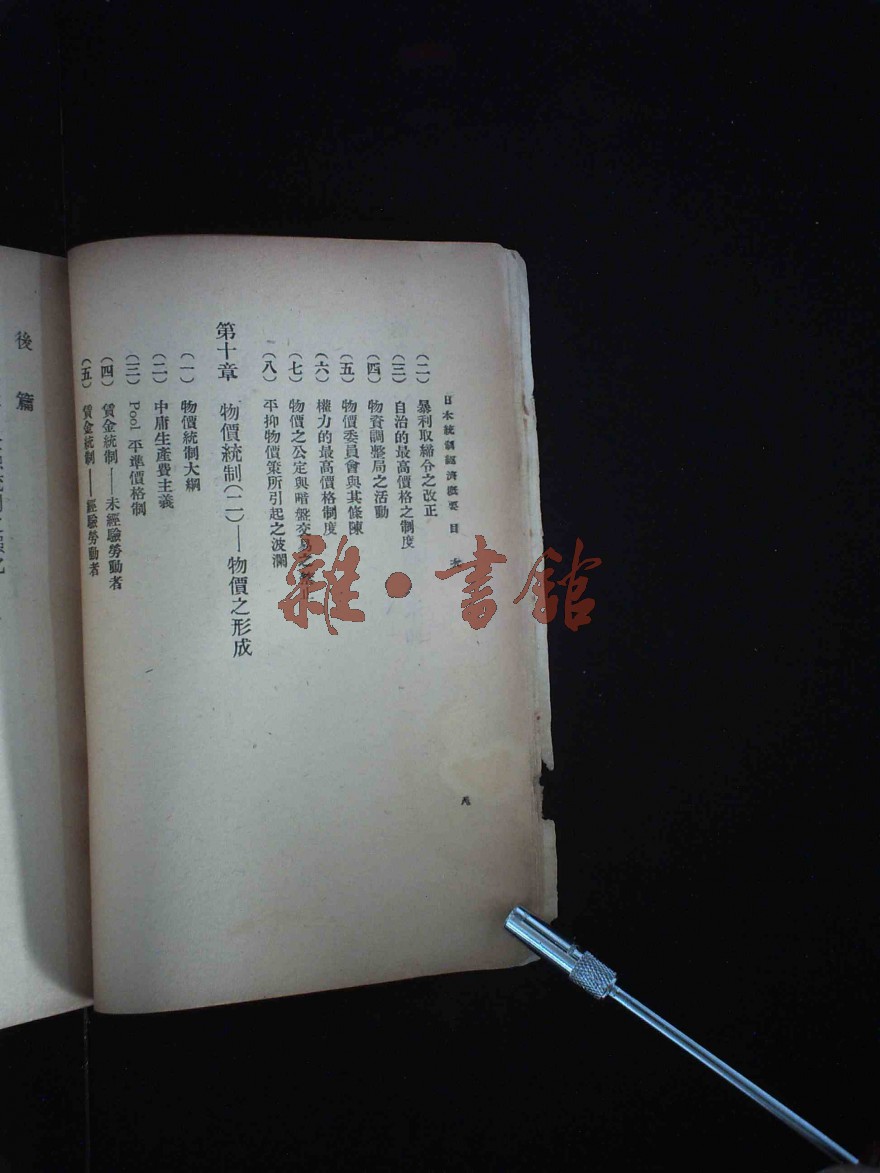 日本統制經濟概要 目 次
(二) 暴利取締令之改正
(三) 自治的最高價格之制度
(四) 物資調整局之活動
(五) 物價委員會與其條陳
(六) 權力的最高價格制度
(七) 物價之公定與暗盤交易之
(八) 平抑物價策所引起之波瀾
第十章 物價統制(二)——物價之形成
(一) 物價統制大綱
(二) 中庸生產費主義
(三) Pool 平準價格制
(四) 賃金統制——未經驗勞動者
(五) 賃金統制——經驗勞動者
八
後篇
雜·書館